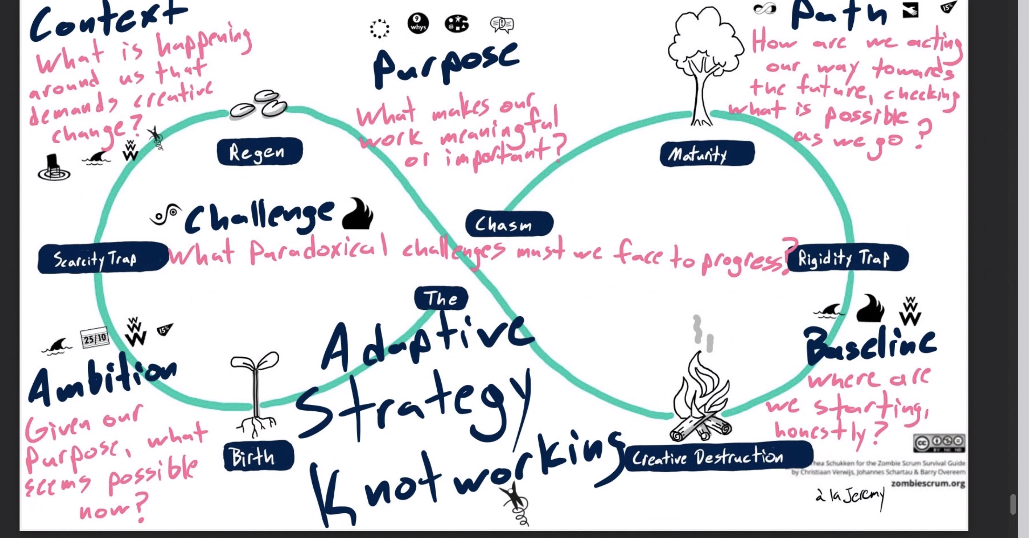 Context
What is happening
around us that
demands creative
change?
whys
Purpose
What makes our
work meaningful
or important?
Path
15%
How are we acting
our way towards
the future, checking
what is possible
as we go?
Regen
Maturity
Challenge
Chasm
What Paradoxical challenges must we face to progress?
Scarcity Trap
Rigidity Trap
The
Adaptive
Strategy
Knotworking
25/10
15%
Ambition
Given our
Purpose, what
seems possible
now?
Birth
Baseline
where are
we starting,
honestly?
Creative Destruction
Schukken for the Zombie Scrum Survival Guide
by Christiaan Verwijs, Johannes Schartau & Barry Overeem
zombiescrum.org
à la Jeremy